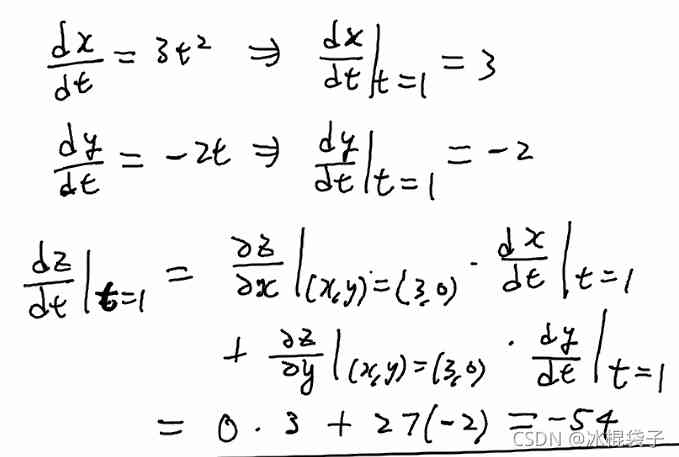 dx/dt = 3t² ⇒ dx/dt|t=1 = 3
dy/dt = -2t ⇒ dy/dt|t=1 = -2
dz/dt|t=1 = ∂z/∂x|(x,y)=(3,0) · dx/dt|t=1
+ ∂z/∂y|(x,y)=(3,0) · dy/dt|t=1
= 0 · 3 + 27(-2) = -54
CSDN @冰棍袋子